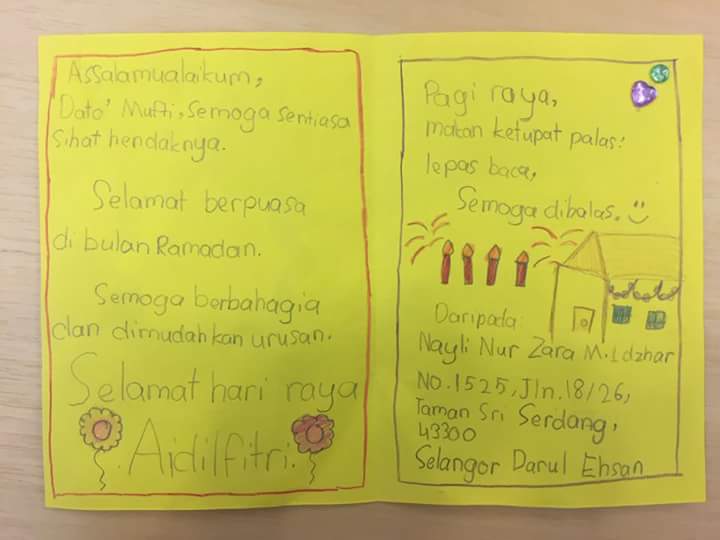 Assalamualaikum,
Dato' Mufti, semoga sentiasa
sihat hendaknya.
Selamat berpuasa
di bulan Ramadan.
Semoga berbahagia
dan dimudahkan urusan.
Selamat hari raya
Aidilfitri.
Pagi raya,
makan ketupat palas:
lepas baca,
Semoga dibalas.
Daripada
Nayli Nur Zara M. Idzhar
NO.1525, Jln. 18/26,
Taman Sri Serdang,
43300
Selangor Darul Ehsan